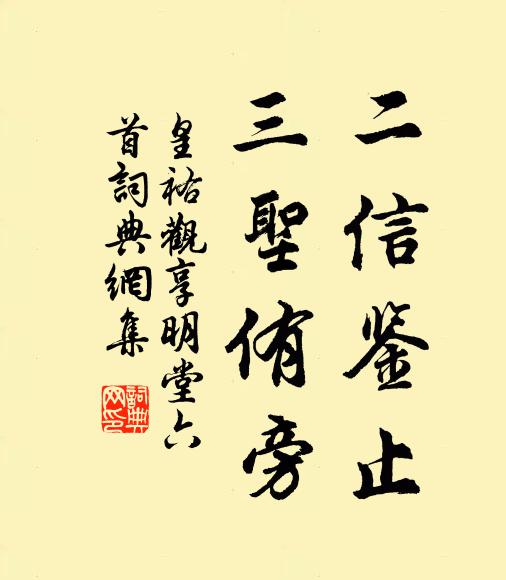 二信鉴止
三聖侑旁
皇祐觀享明堂六
首詞典網集
詞典
网印